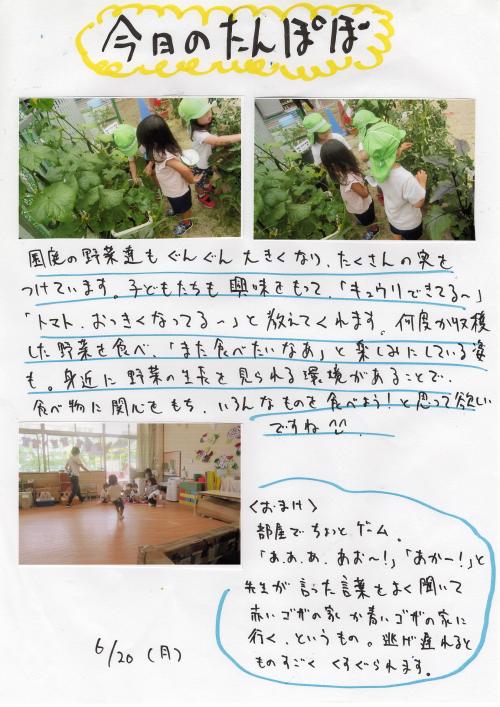 今日のたんぽぽ
園庭の野菜達もぐんぐん大きくなり、たくさんの実を
つけています。子どもたちも興味をもって、「キュウリできてる〜」
「トマト、おっきくなってる〜」と教えてくれます。何度か収穫
した野菜を食べ、「また食べたいなあ」と楽しみにしている姿
も。身近に野菜の生長を見られる環境があることで、
食べ物に関心をもち、いろんなものを食べよう!と思って欲しい
ですね^^
<おまけ>
部屋でちょっとゲーム。
「あ、あ、あ、あお〜!」「あか〜!」と
先生が言った言葉をよく聞いて
赤いゴザの家か青いゴザの家に
行く、というもの。逃げ遅れると
ものすごくくすぐられます。
6/20(月)